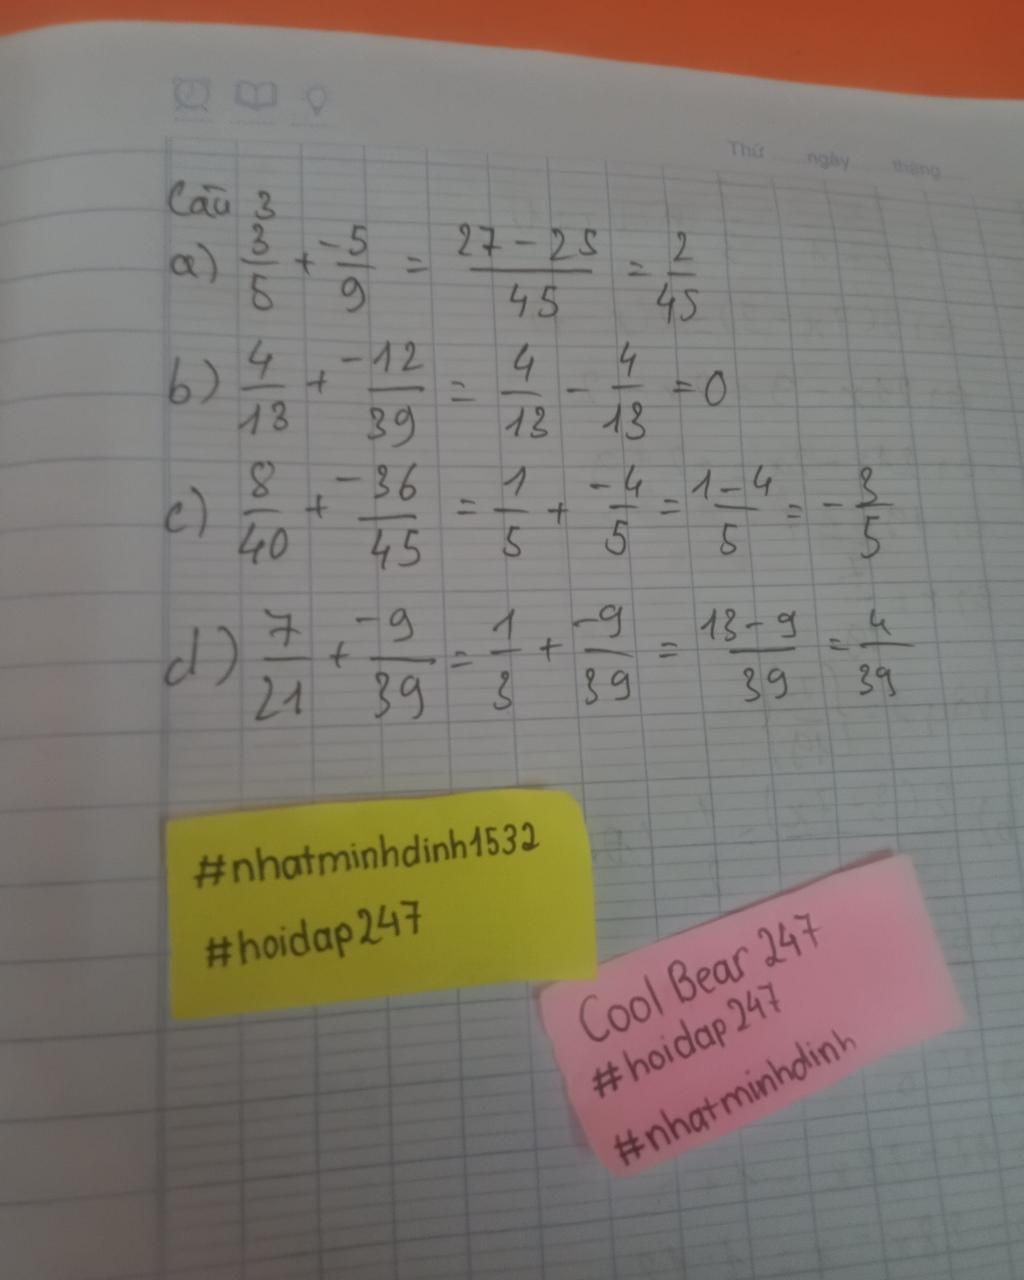 Thứ ngày tháng
Câu 3
a) 3/5 + -5/9 = 27 - 25/45 = 2/45
b) 4/13 + -12/39 = 4/13 - 4/13 = 0
c) 8/40 + -36/45 = 1/5 + -4/5 = 1-4/5 = - 3/5
d) 7/21 + -9/39 = 1/3 + -9/39 = 13-9/39 = 4/39
#nhatminhdinh1532
#hoidap247
Cool Bear 247
#hoidap247
#nhatminhdinh